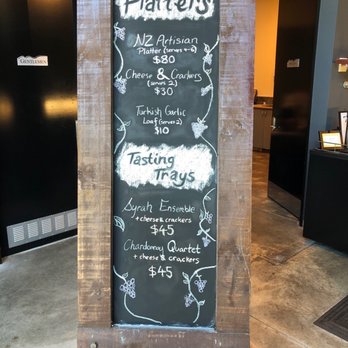 Platters
NZ Artisian
Platter (serves 4-6)
$80
Cheese & Crackers
(serves 2)
$30
Turkish Garlic
Loaf (serves 2)
$10
Tasting
Trays
Syrah Ensemble
+ cheese & crackers
$45
Chardonnay Quartet
+ cheese & crackers
$45
GENTLEMEN